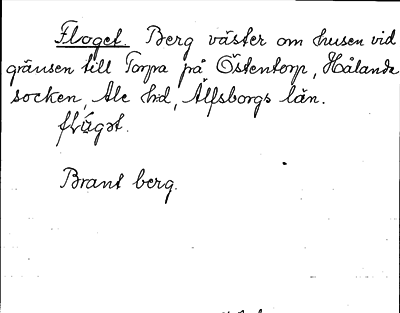 Floget. Berg väster om husen vid
gränsen till Torpa på Östentorp, Hålanda
socken, Ale hd, Älfsborgs län.
Brant berg.